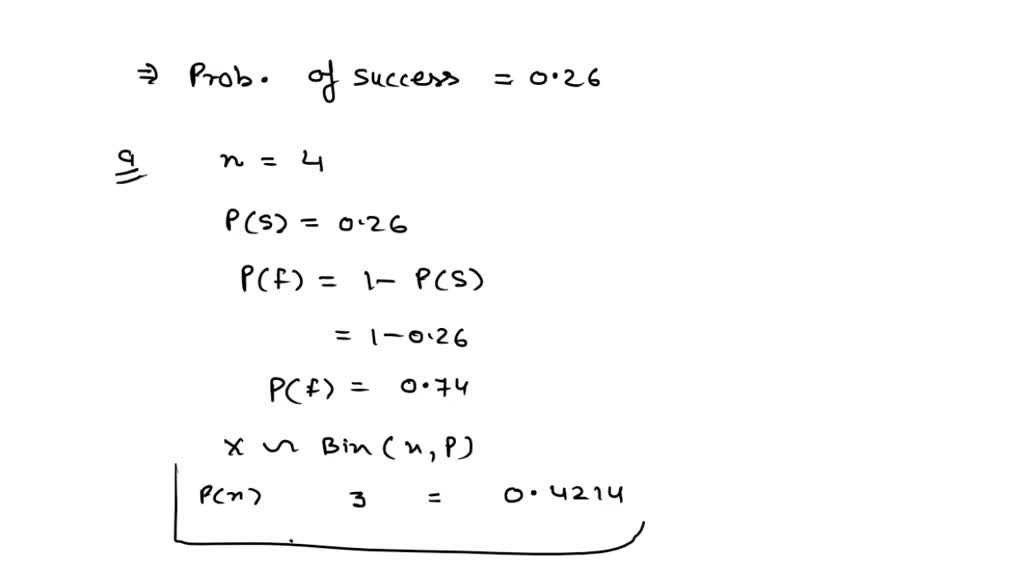 ⇒ Prob. of success = 0.26
a n = 4
P(S) = 0.26
P(f) = 1 - P(S)
= 1 - 0.26
P(f) = 0.74
X ~ Bin (n, P)
P(n) 3 = 0.4214